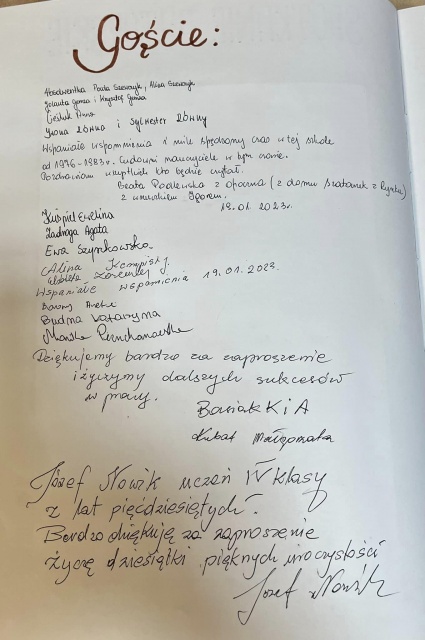 Goście:
Absolwentka Paula Szewczyk, Alina Szewczyk
Jolanta Gomza i Krzysztof Gomza
Cieślak Anna
Iwona Równa i Sylwester Równy
Wspaniałe wspomnienia i mile spędzony czas w tej szkole
od 1976-1983r. Cudowni nauczyciele w tym czasie.
Pozdrawiam wszystkich kto będzie czytał.
Beata Podlewska z Opoczna (z domu Szatanek z Rynku)
z Igorem.
19.01.2023r.
Kuśpiel Ewelina
Zadroga Agata
Ewa Szynkowska
Alina
Wspaniałe wspomnienia 19.01.2023
Budna Katarzyna
Dziękujemy bardzo za zaproszenie
i życzymy dalszych sukcesów
w pracy.
Basiak K i A
Kubat Małgorzata
Józef Nowik uczeń IV klasy
z lat pięćdziesiętych.
Bardzo dziękuję za zaproszenie
życzę dziesiątki pięknych uroczystości
Józef Nowik